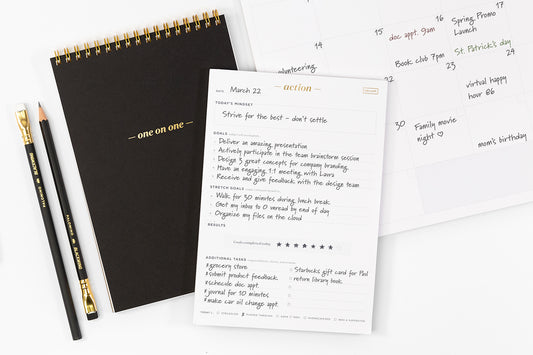 — one on one —
PALOMINO
BLACKWING
DATE March 22
— action —
TODAY'S MINDSET
Strive for the best - don't settle
GOALS
Deliver an amazing presentation
Actively participate in the team brainstorm session
Design 3 great concepts for company branding
Have an engaging 1:1 meeting with Laura
Receive and give feedback with the design team
STRETCH GOALS
Walk for 30 minutes during lunch break
Get my inbox to 0 unread by end of day
Organize my files on the cloud
RESULTS
Goals completed today
ADDITIONAL TASKS
grocery store
submit product feedback
schedule doc appt.
journal for 10 minutes
make car oil change appt.
Starbucks gift card for Phil
return library book
14
15
16
17
volunteering
doc appt. 9am
Spring Promo
Launch
22
23
24
Book club 7pm
St. Patrick's day
virtual happy
hour @6
29
30
31
Family movie
night
mom's birthday